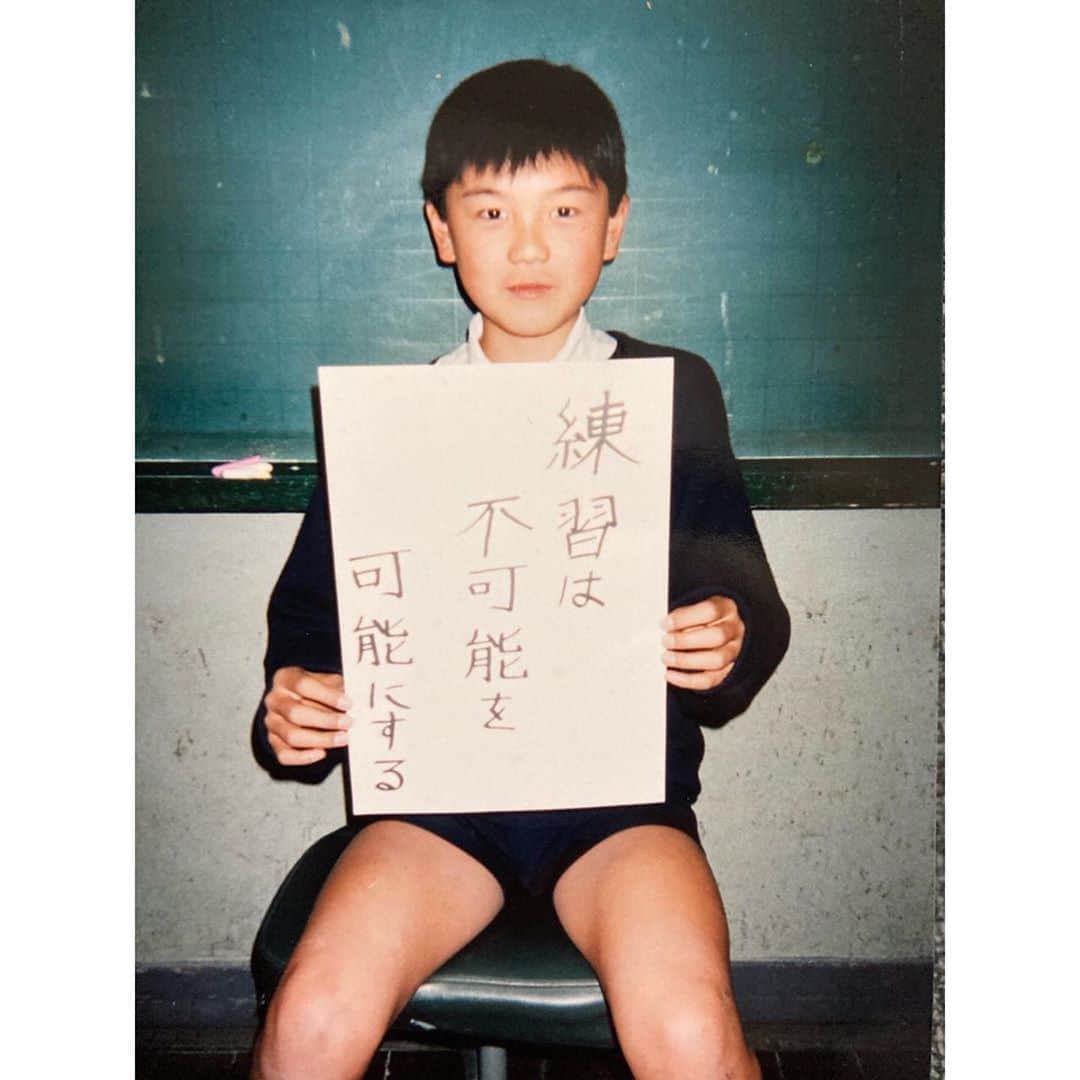 練習は
不可能を
可能にする